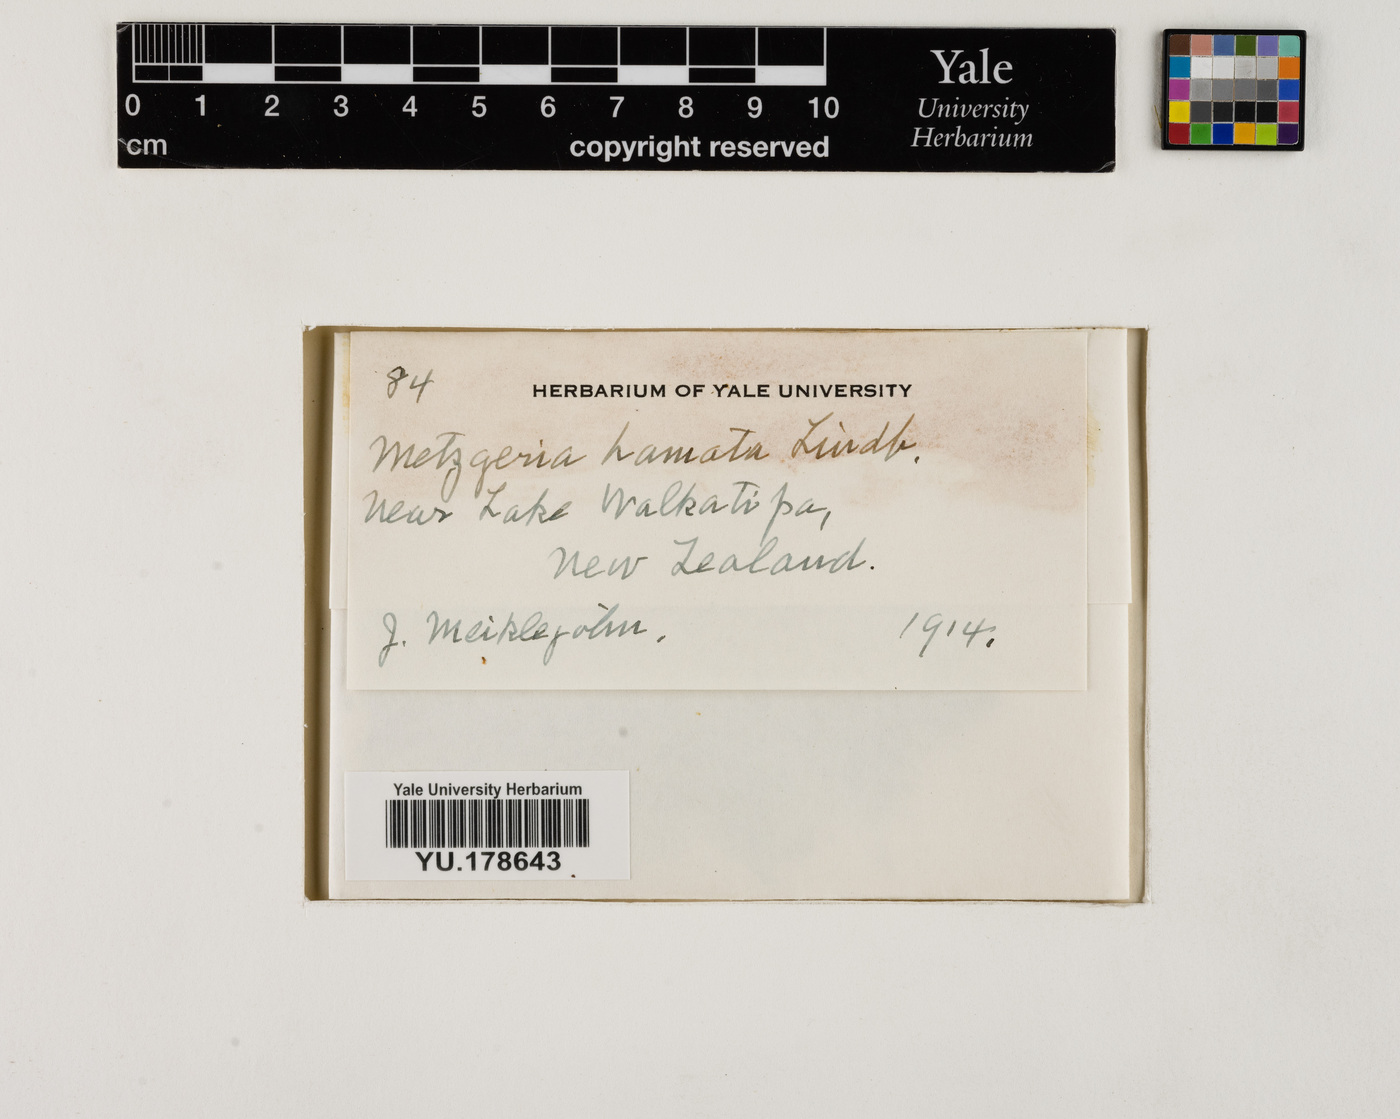 0 1 2 3 4 5 6 7 8 9 10
cm
copyright reserved
Yale
University
Herbarium
84
HERBARIUM OF YALE UNIVERSITY
Metzgeria hamata Lindb.
Near Lake Walkatipa,
New Zealand.
J. Meiklejohn.
1914.
Yale University Herbarium
YU.178643